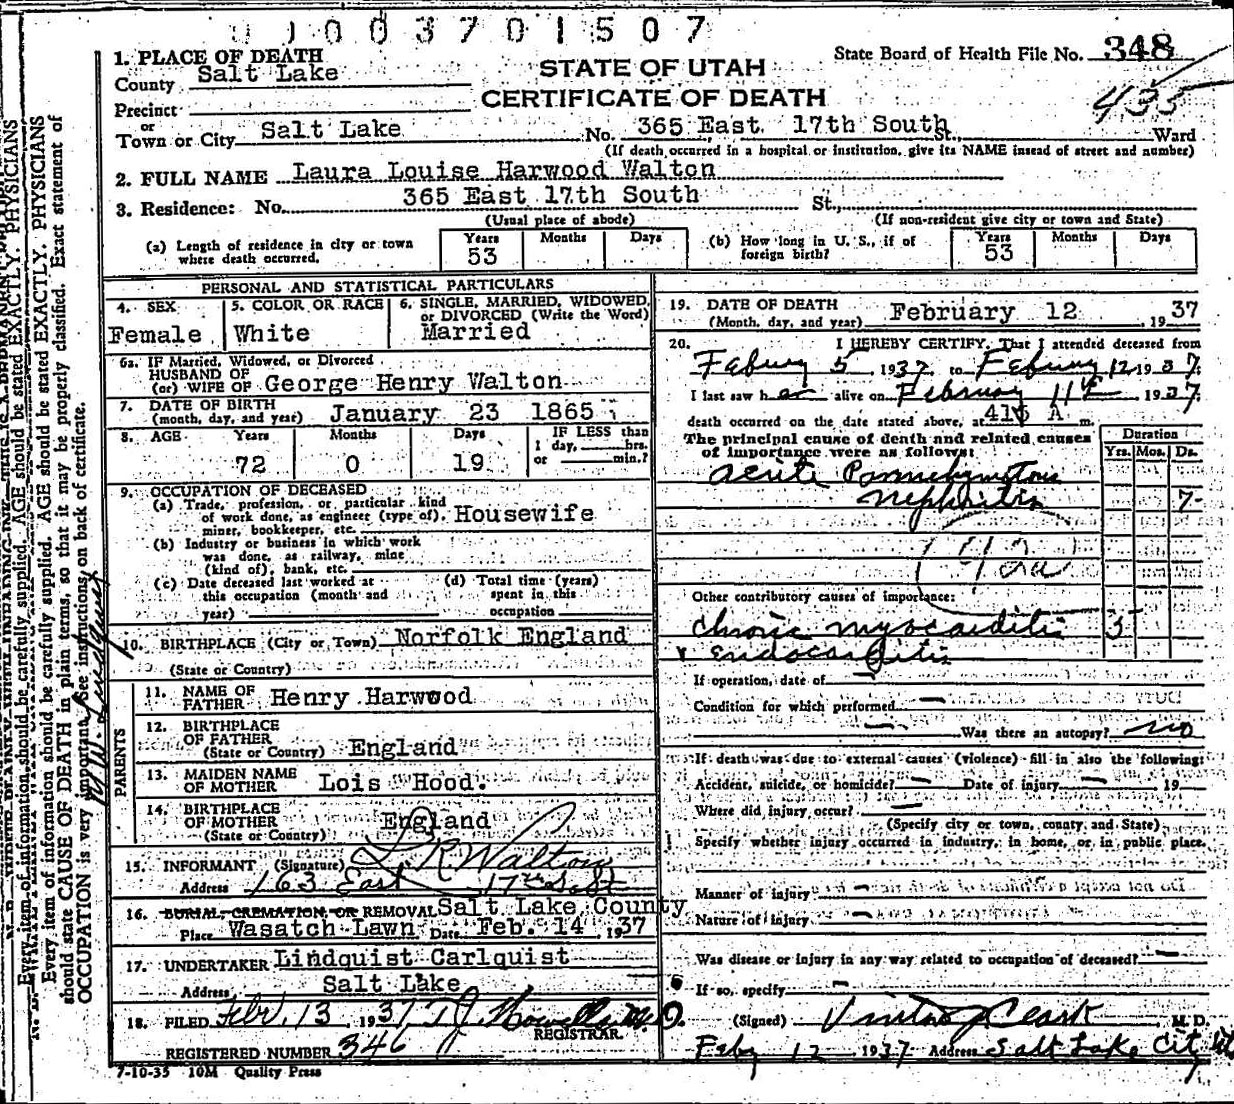 003701507
1. PLACE OF DEATH
County Salt Lake
STATE OF UTAH
State Board of Health File No. 348
Precinct
CERTIFICATE OF DEATH
435
or
Town or City Salt Lake No. 365 East 17th South St., Ward
(If death occurred in a hospital or institution, give its NAME insead of street and number)
2. FULL NAME Laura Louise Harwood Walton
3. Residence: No. 365 East 17th South St.,
(Usual place of abode) (If non-resident give city or town and State)
(a) Length of residence in city or town where death occurred. Years 53 Months Days
(b) How long in U. S., if of foreign birth? Years 53 Months Days
PERSONAL AND STATISTICAL PARTICULARS
4. SEX Female
5. COLOR OR RACE White
6. SINGLE, MARRIED, WIDOWED, or DIVORCED (Write the Word) Married
6a. IF Married, Widowed, or Divorced
HUSBAND OF
(or) WIFE OF George Henry Walton
7. DATE OF BIRTH
(month, day, and year) January 23 1865
8. AGE Years 72 Months 0 Days 19
IF LESS than 1 day, hrs. or min.?
9. OCCUPATION OF DECEASED
(a) Trade, profession, or particular kind
of work done, as engineer (type of), Housewife
miner, bookkeeper, etc.
(b) Industry or business in which work
was done, as railway, mine
(kind of), bank, etc.
(c) Date deceased last worked at this occupation (month and year)
(d) Total time (years) spent in this occupation
10. BIRTHPLACE (City or Town) Norfolk England
(State or Country)
PARENTS
11. NAME OF FATHER Henry Harwood
12. BIRTHPLACE OF FATHER
(State or Country) England
13. MAIDEN NAME OF MOTHER Lois Hood.
14. BIRTHPLACE OF MOTHER England
(State or Country)
15. INFORMANT (Signature) R Walton
Address 163 East 17th So. St
16. BURIAL, CREMATION, OR REMOVAL Salt Lake County
Place Wasatch Lawn Date Feb. 14, 1937
17. UNDERTAKER Lindquist Carlquist
Address Salt Lake
18. FILED Feb. 13, 1937 T J Howells M.D.
REGISTRAR
REGISTERED NUMBER 346
7-10-35 10M Quality Press
19. DATE OF DEATH
(Month, day, and year) February 12 1937
20. I HEREBY CERTIFY, That I attended deceased from
Febury 5 1937 to Febury 12 1937;
I last saw her alive on February 11th 1937
death occurred on the date stated above, at 415 A m.
The principal cause of death and related causes
of importance were as follows: Duration
Yrs. Mos. Ds.
acute Parenchymatous
nephritis 7
Other contributory causes of importance:
chronic myocarditis 3
& endocarditis
If operation, date of
Condition for which performed
Was there an autopsy? no
If death was due to external causes (violence) fill in also the following:
Accident, suicide, or homicide? Date of injury 19
Where did injury occur?
(Specify city or town, county, and State)
Specify whether injury occurred in industry, in home, or in public place.
Manner of injury
Nature of injury
Was disease or injury in any way related to occupation of deceased?
If so, specify
(Signed) Clark M. D.
Feby 12, 1937 Address Salt Lake City Ut
Every item of information should be carefully supplied. AGE should be stated EXACTLY. PHYSICIANS
should state CAUSE OF DEATH in plain terms, so that it may be properly classified. Exact statement of
OCCUPATION is very important. See instructions on back of certificate.